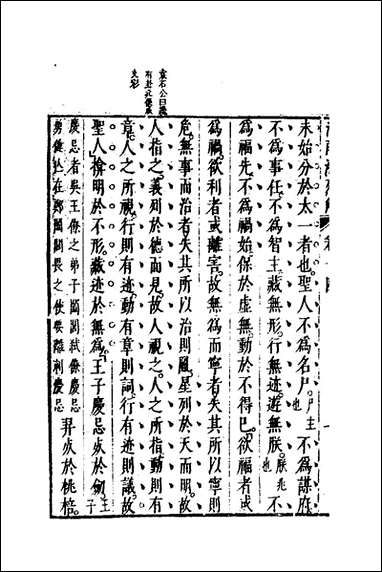 袁石公曰
有卦爻
文彩
未始分於太一者也聖人不為名尸尸主也不為謀府
不為事任不為智主藏無形行無迹遊無朕朕兆也不
為福先不為禍始保於虛無動於不得已欲福者或
為禍欲利者或離害故無為而寧者失其所以寧則
危無事而治者失其所以治則亂星列於天而明故
人指之義列於德而見故人視之人之所指動則有
章人之所視行則有迹動有章則詞行有迹則議故
聖人揜明於不形藏迹於無為王子慶忌死於劍王子
慶忌者吳王僚之弟子闔閭弑僚慶忌勇健亡在鄭闔閭畏之使要離刺慶忌羿死於桃棓